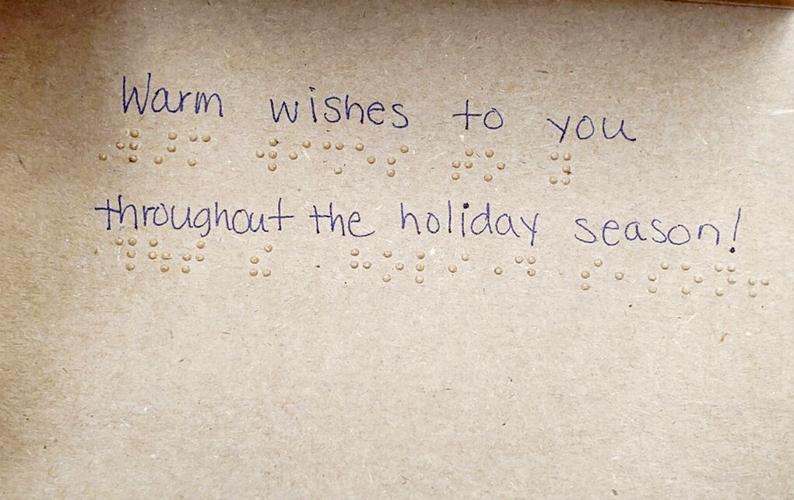 Warm wishes to you
throughout the holiday season!